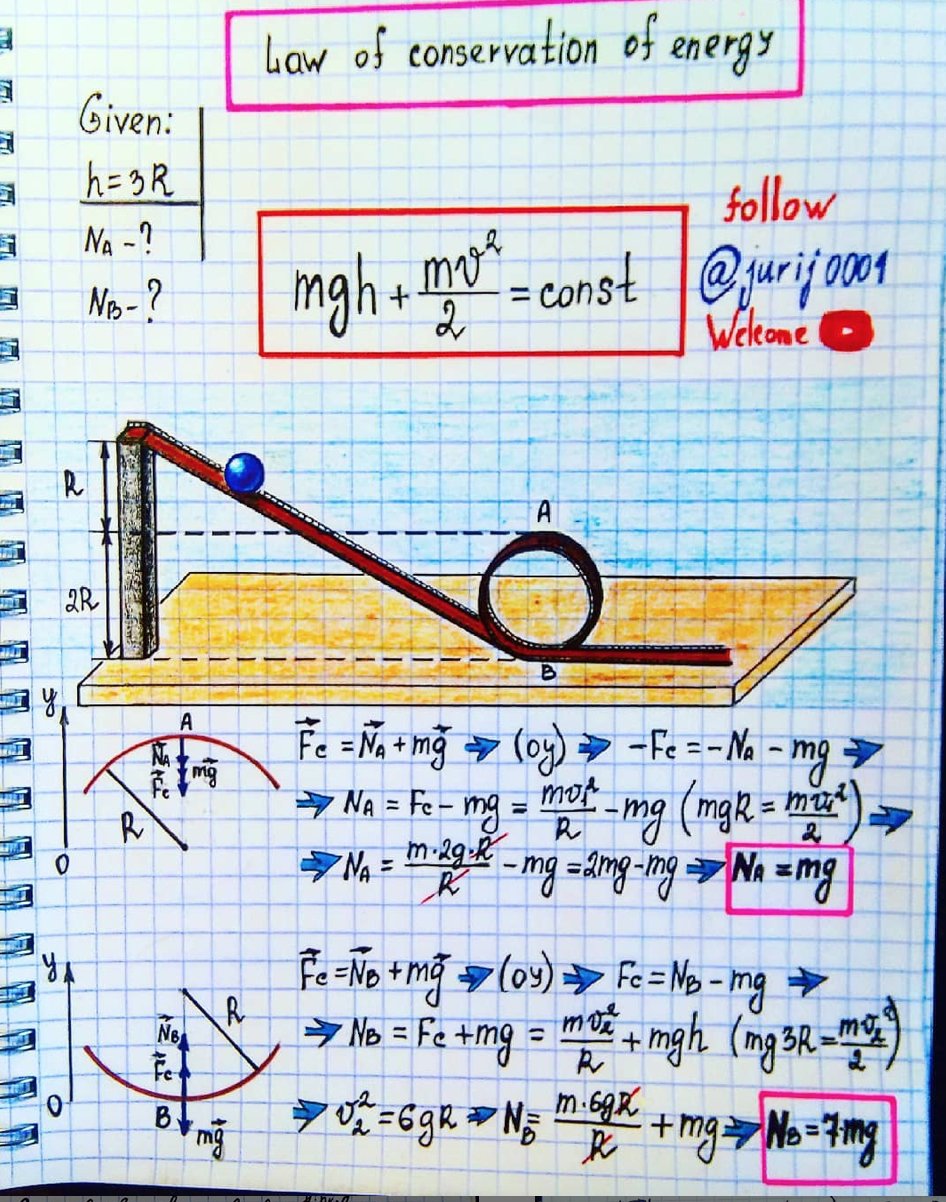 Law of conservation of energy
Given:
h=3R
N_A - ?
N_B - ?
mgh + mv²/2 = const
follow
@jurij0001
Welcome
R
2R
A
B
y
A
N⃗_A
F⃗c
mg⃗
R
0
F⃗c = N⃗_A + mg⃗ ⇒ (oy) ⇒ -Fc = -N_A - mg ⇒
⇒ N_A = Fc - mg = mv₁²/R - mg (mgR = mv₁²/2) ⇒
⇒ N_A = m·2g·R/R - mg = 2mg - mg ⇒ N_A = mg
y
R
N⃗_B
F⃗c
0
B
mg⃗
F⃗c = N⃗_B + mg⃗ ⇒ (oy) ⇒ Fc = N_B - mg ⇒
⇒ N_B = Fc + mg = mv₂²/R + mgh (mg3R = mv₂²/2)
⇒ v₂² = 6gR ⇒ N_B = m·6gR/R + mg ⇒ N_B = 7mg